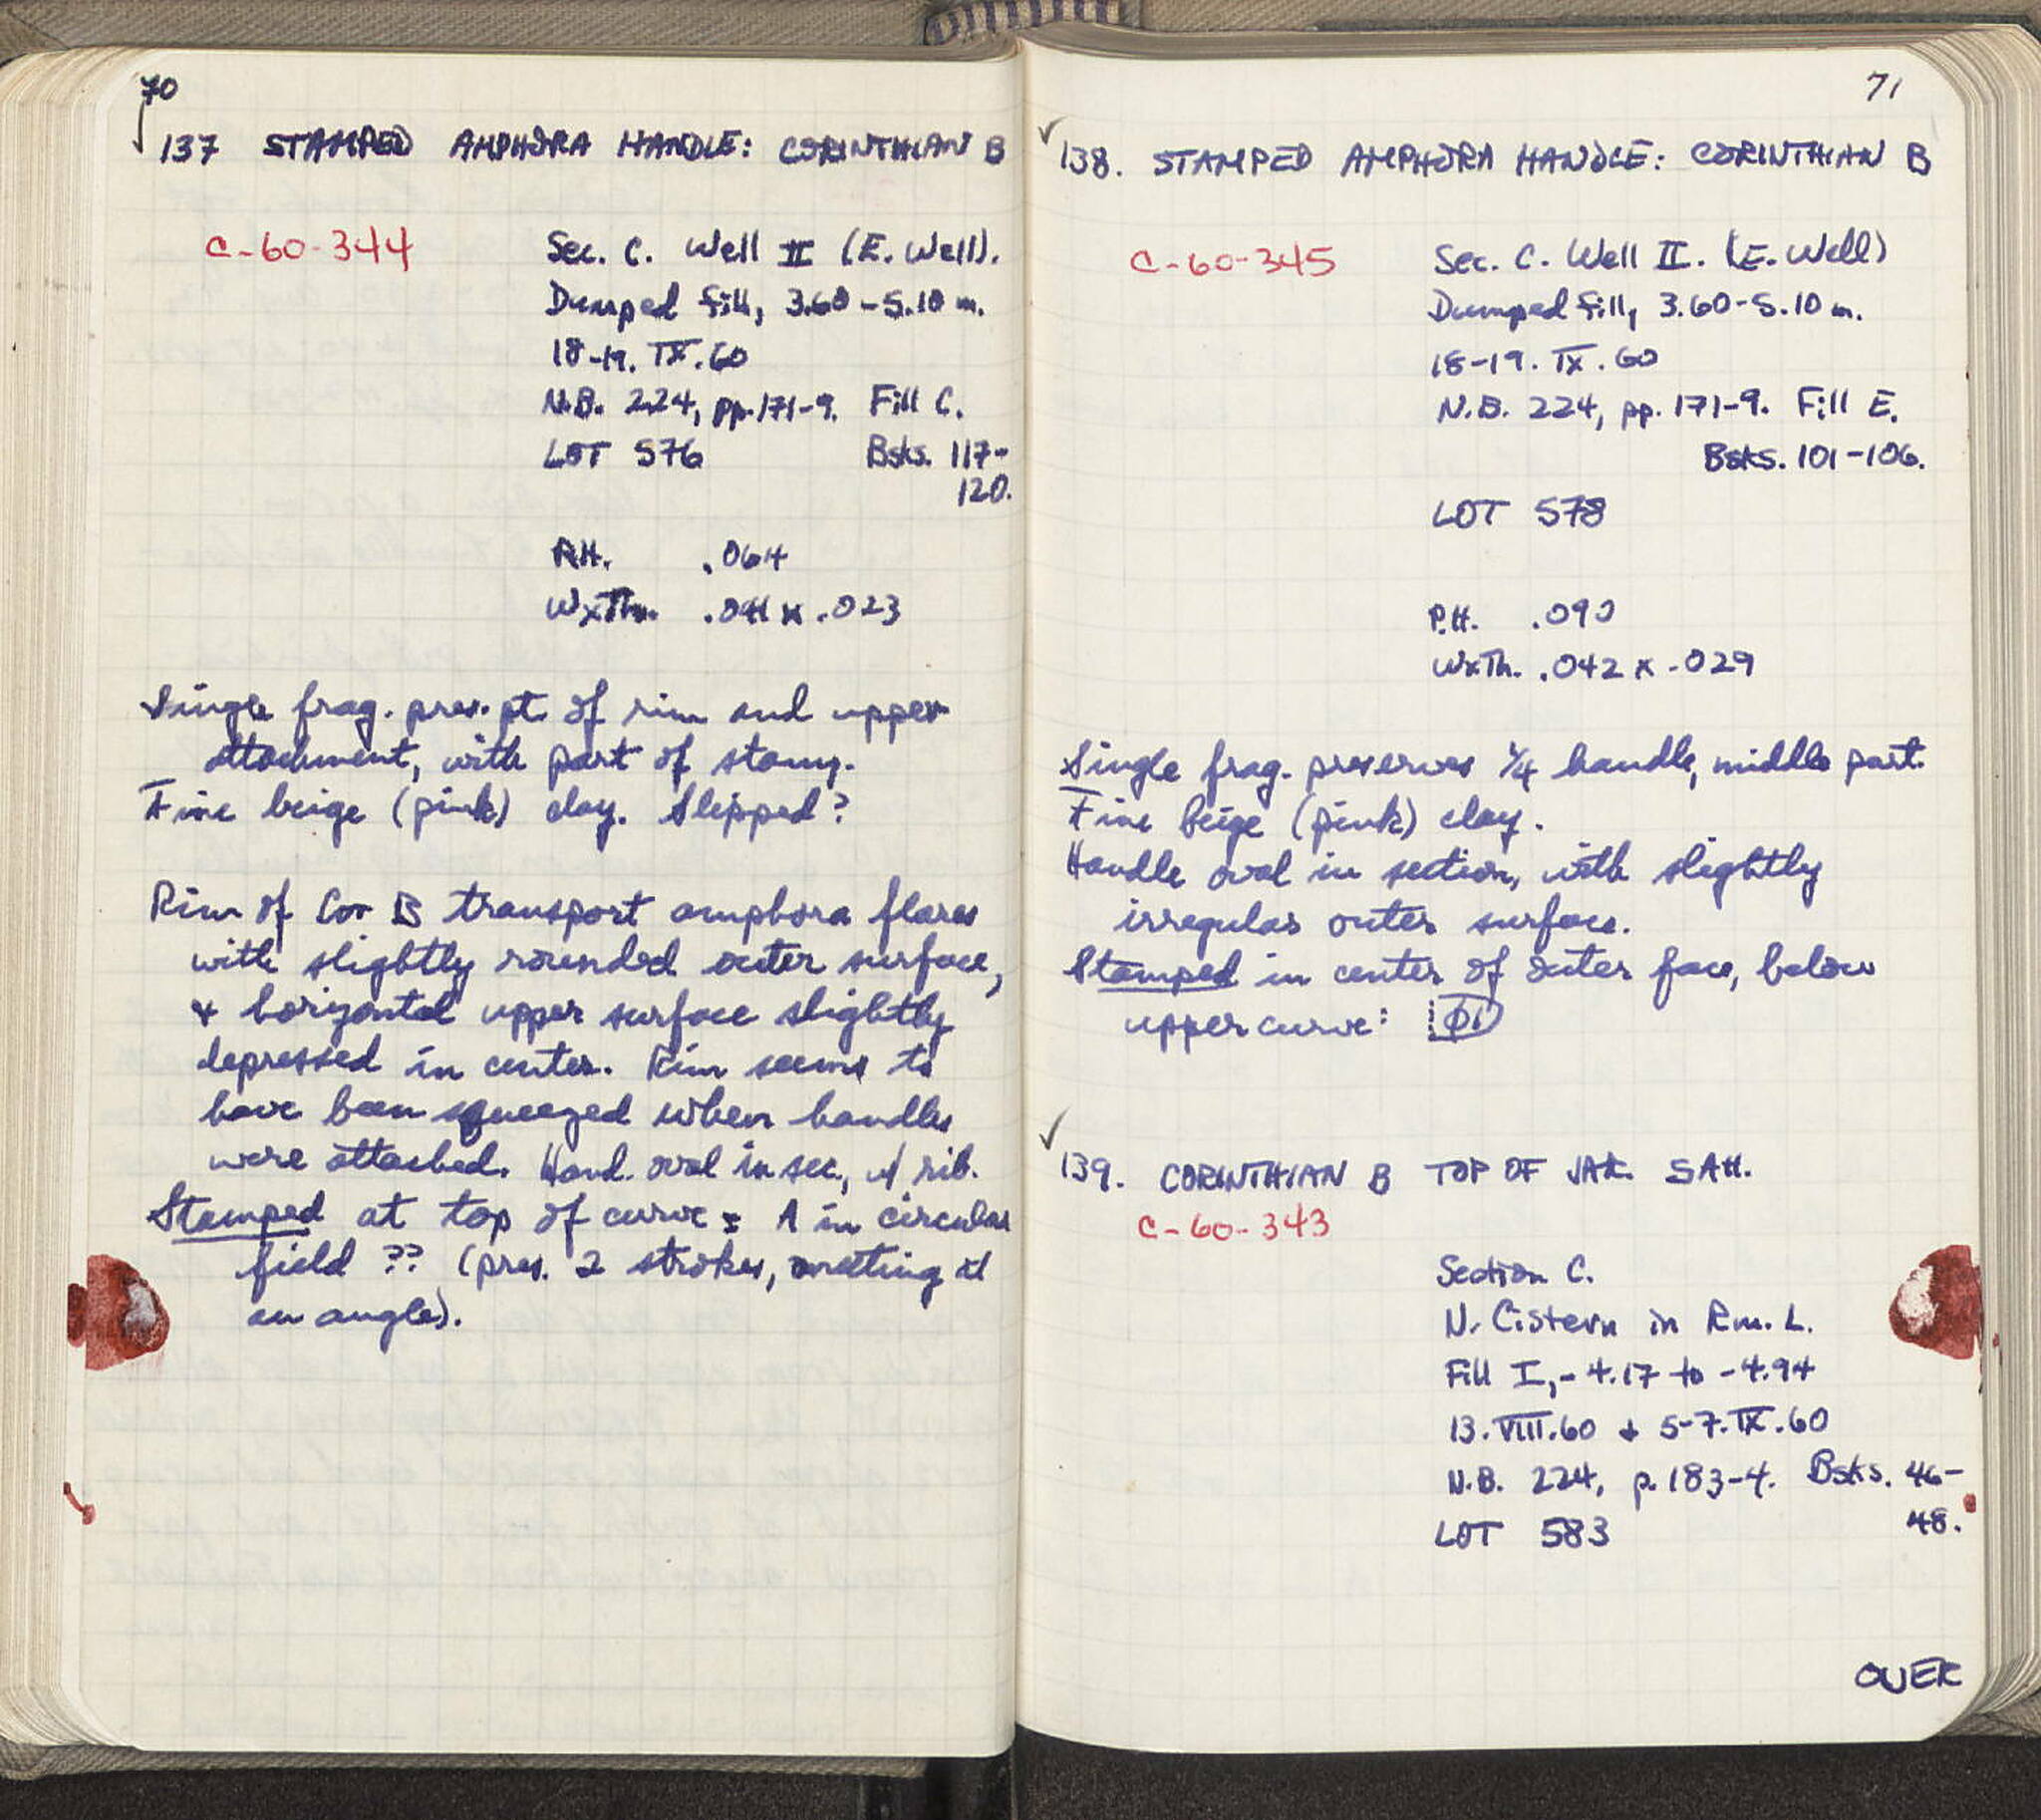 70
137 STAMPED AMPHORA HANDLE: CORINTHIAN B
C-60-344
Sec. C. Well II (E. Well).
Dumped fill, 3.60-5.10 m.
18-19. IX. 60
N.B. 224, pp. 171-9. Fill C.
LOT 576 Bsks. 117-
120.
P.H. .064
WxTh. .041 x .023
Single frag. pres. pt. of rim and upper
attachment, with part of stamp.
Fine beige (pink) clay. Slipped?
Rim of Cor B transport amphora flares
with slightly rounded outer surface,
+ horizontal upper surface slightly
depressed in center. Rim seems to
have been squeezed when handles
were attached. Hand. oval in sec., w/ rib.
Stamped at top of curve: A in circular
field ?? (pres. 2 strokes, meeting at
an angle).
71
✓
138. STAMPED AMPHORA HANDLE: CORINTHIAN B
C-60-345
Sec. C. Well II. (E. Well)
Dumped fill, 3.60-5.10 m.
18-19. IX. 60
N.B. 224, pp. 171-9. Fill E.
Bsks. 101-106.
LOT 578
P.H. .090
WxTh. .042 x .029
Single frag. preserves 1/4 handle, middle part.
Fine beige (pink) clay.
Handle oval in section, with slightly
irregular outer surface.
Stamped in center of outer face, below
upper curve:
✓
139. CORINTHIAN B TOP OF JAR. SAH.
C-60-343
Section C.
N. Cistern in Rm. L.
Fill I, -4.17 to -4.94
13. VIII. 60 + 5-7. IX. 60
N.B. 224, p. 183-4. Bsks. 46-
48.
LOT 583
OVER